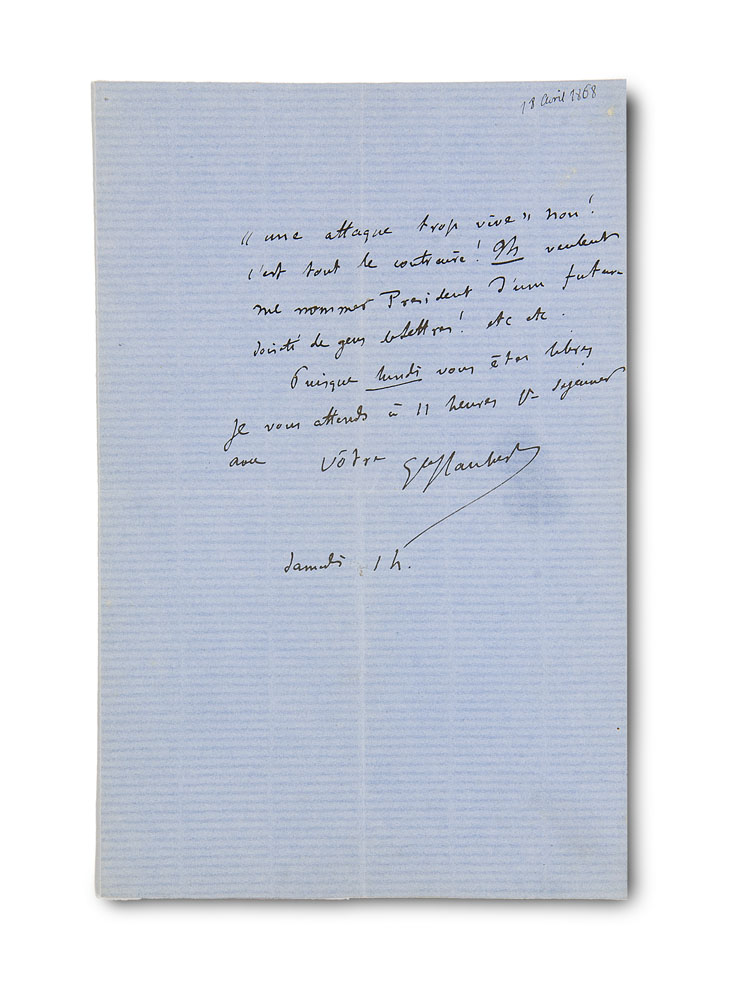 18 Avril 1868
« une attaque trop vive » non!
c'est tout le contraire! Ils veulent
me nommer President d'une future
société de gens de lettres! etc etc.
Puisque lundi vous êtes libres
Je vous attends à 11 heures pr déjeuner
avec Vôtre Gve Flaubert
Samedi 1 h.